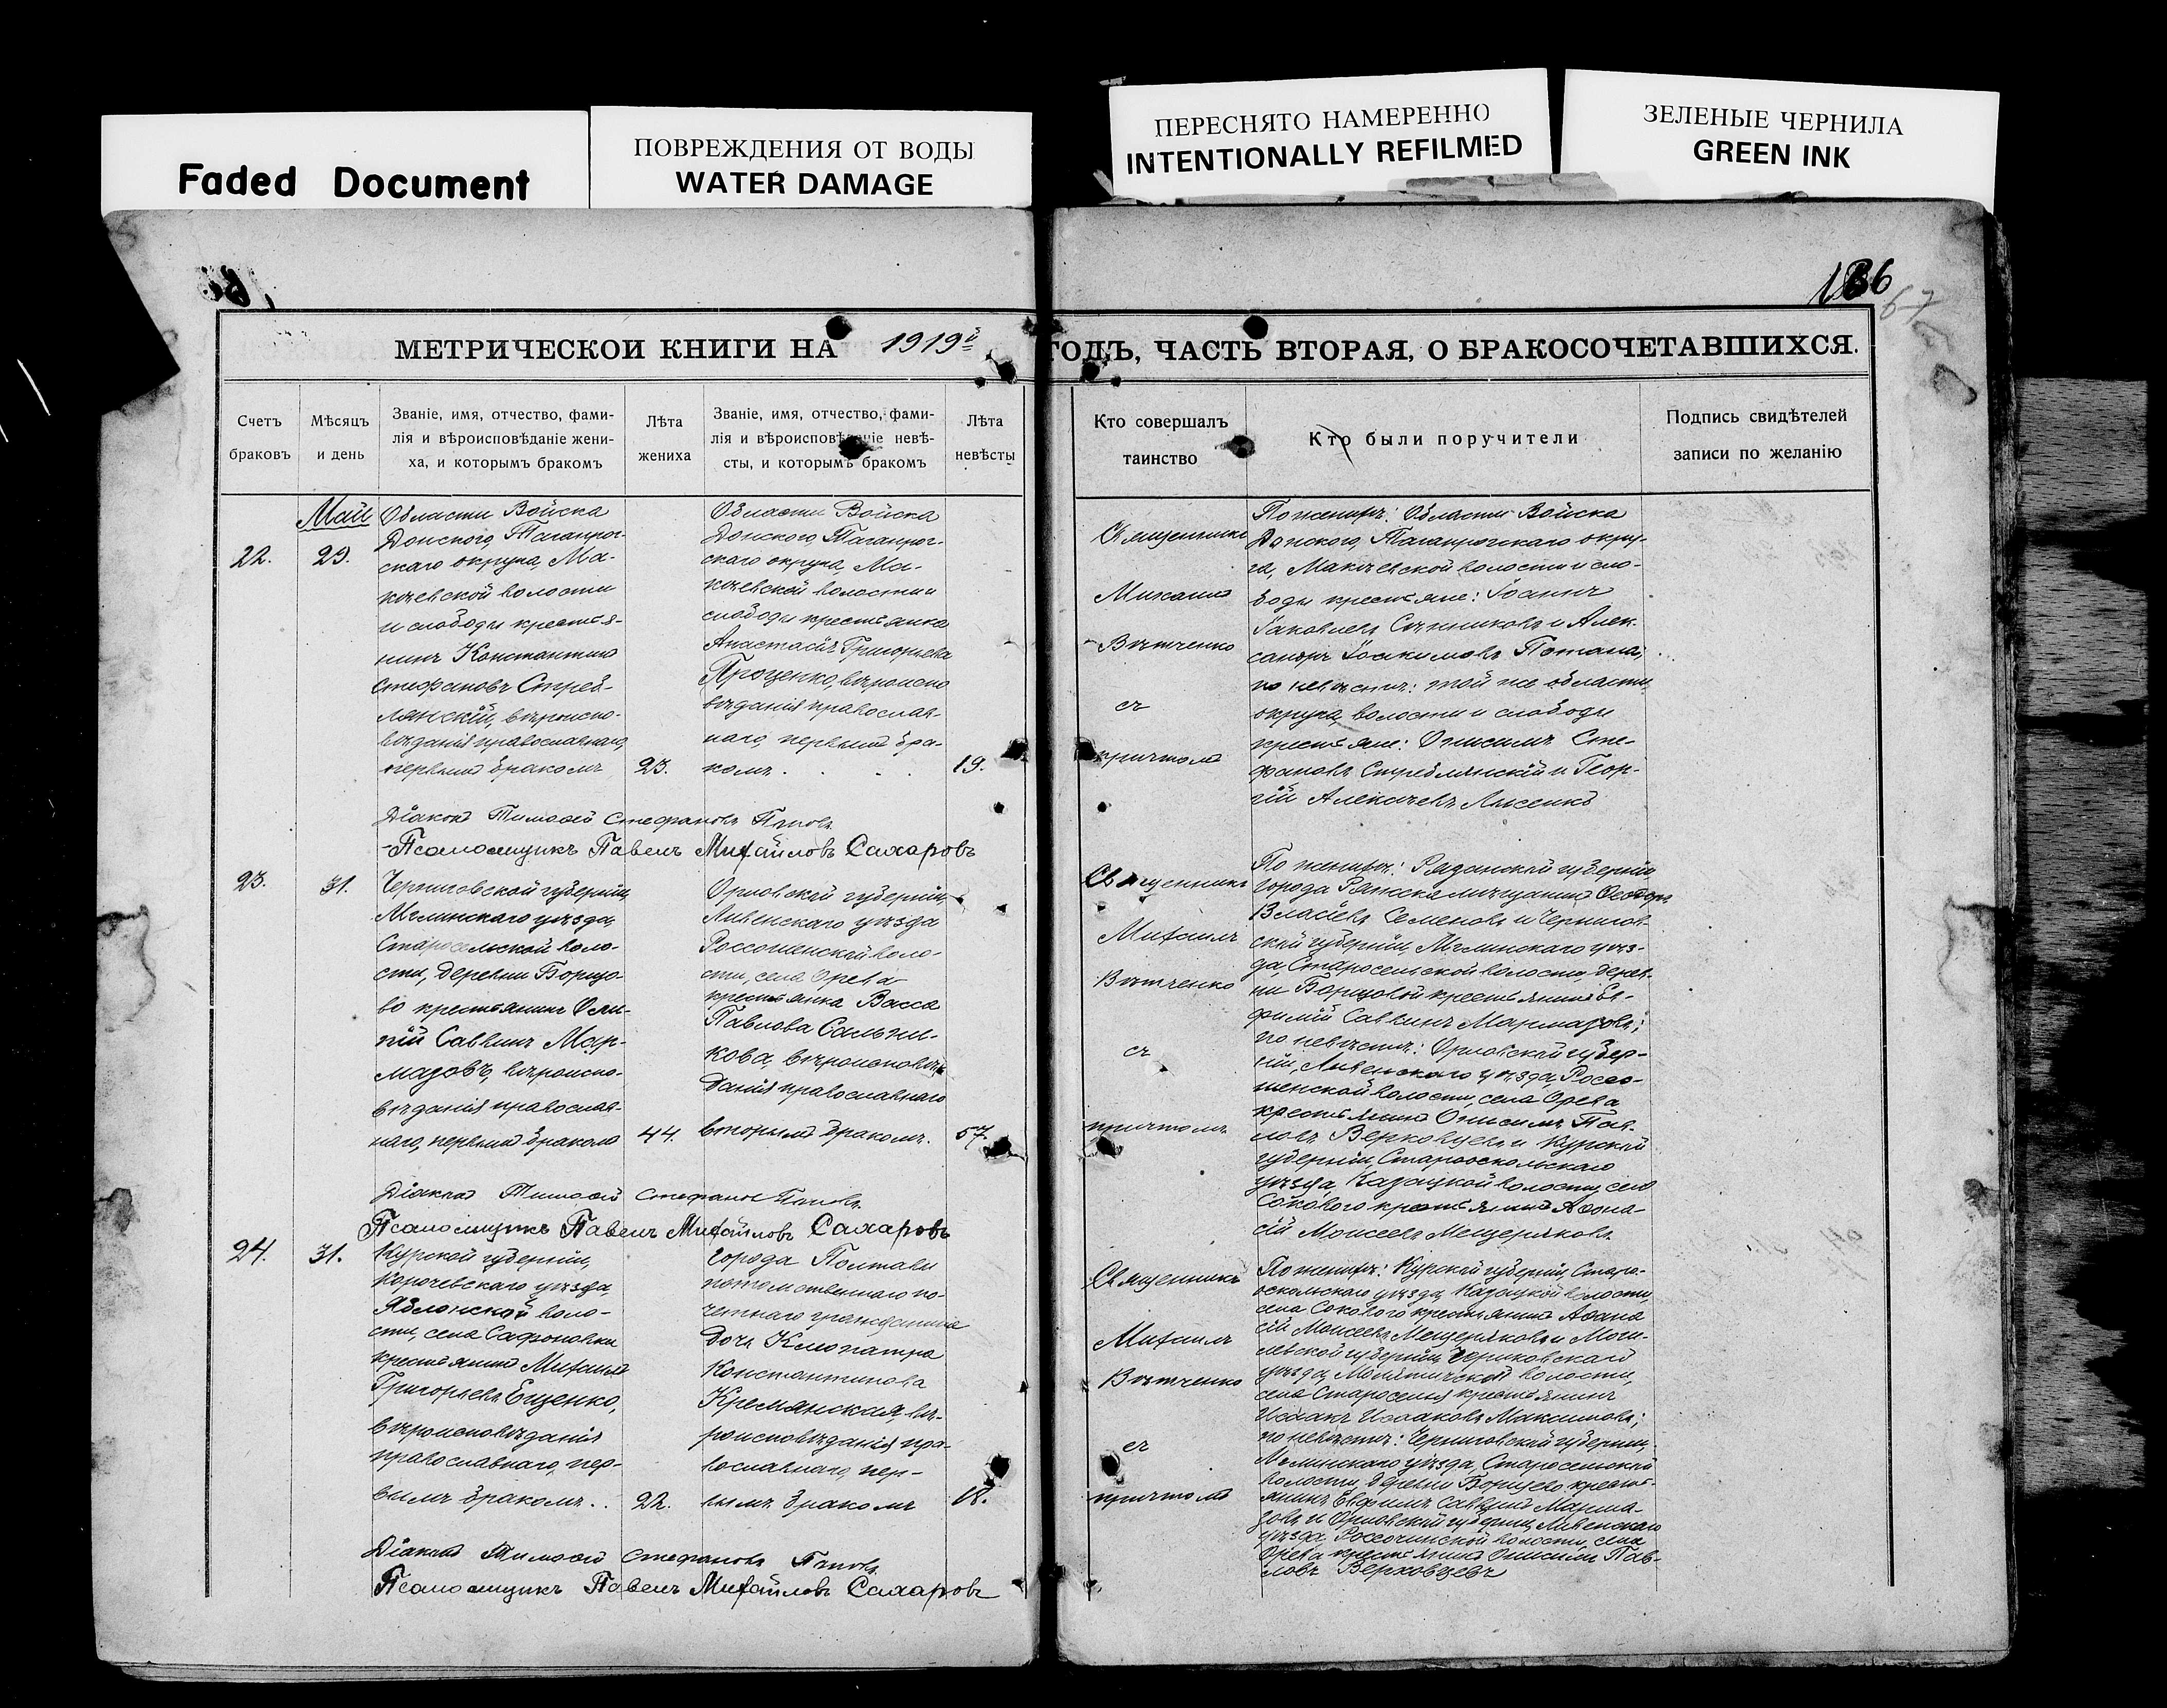 Faded Document
ПОВРЕЖДЕНИЯ ОТ ВОДЫ
WATER DAMAGE
ПЕРЕСНЯТО НАМЕРЕННО
INTENTIONALLY REFILMED
ЗЕЛЕНЫЕ ЧЕРНИЛА
GREEN INK
67
МЕТРИЧЕСКОИ КНИГИ НА 1919й ГОДЪ, ЧАСТЬ ВТОРАЯ, О БРАКОСОЧЕТАВШИХСЯ.
Счетъ
браковъ
Мѣсяцъ
и день
Званіе, имя, отчество, фами-
лія и вѣроисповѣданіе жени-
ха, и которымъ бракомъ
Лѣта
жениха
Званіе, имя, отчество, фами-
лія и вѣроисповѣданіе невѣ-
сты, и которымъ бракомъ
Лѣта
невѣсты
Кто совершалъ
таинство
Кто были поручители
Подпись свидѣтелей
записи по желанію
22.
Май
Области Войска
Донского, Таганрог-
скаго округа, Ма-
кѣевской волости
и слободы крестья-
нинъ Константинъ
Стефановъ Стреб-
лянскій, вѣроиспо-
вѣданія православнаго,
первымъ бракомъ
23.
Области Войска
Донского, Таганрог-
скаго округа, Ма-
кѣевской волости и
слободы крестьянка
Анастасія Григорьева
Проценко, вѣроиспо
вѣданія православ-
наго, первымъ бра-
комъ. . . .
19.
Священникъ
Михаилъ
Вѣтченко
съ
причтомъ
По женихѣ: Области Войска
Донского, Таганрогскаго окру-
га, Макѣевской волости и сло-
боды крестьяне: Іоаннъ
Іаковлевъ и Алек-
сандръ Іоакимовъ
по невѣстѣ: той же области,
округа, волости и слободы
крестьяне: Онисимъ Сте-
фановъ Стреблянскій и Геор-
гій Алексѣевъ Лысенко
Діаконъ Тимофей Стефановъ Поповъ
Псаломщикъ Павелъ Михайловъ Сахаровъ
23.
31.
Черниговской губерніи,
Мглинскаго уѣзда,
Старосельской воло-
сти, деревни Борщо-
во крестьянинъ
Савкинъ Мар-
мазовъ, вѣроиспо-
вѣданія православ-
наго, первымъ бракомъ
44.
Орловской губерніи,
Ливенскаго уѣзда
Россошенской воло-
сти, села Орева
крестьянка Васса
Павлова Сальни-
кова, вѣроисповѣ-
данія православнаго
вторымъ бракомъ.
57.
Священникъ
Михаилъ
Вѣтченко
съ
причтомъ
По женихѣ: Рязанской губерніи,
города Ряжска мѣщанинъ Ѳеодоръ
Власіевъ Семеновъ и Чернигов-
ской губерніи, Мглинскаго уѣз-
да, Старосельской волости, дерев-
ни Борщовой крестьянинъ Ев-
фимій Савкинъ Мармазовъ;
по невѣстѣ: Орловской губер-
ніи, Ливенскаго уѣзда, Россо-
шенской волости, села Орева
крестьянинъ Онисимъ Пав-
ловъ Верховцевъ и Курской
губерніи, Старооскольскаго
уѣзда, Казацкой волости, села
Сокового крестьянинъ Аѳона-
сій Моисеевъ Мещеряковъ
Діаконъ Тимофей Стефановъ Поповъ
Псаломщикъ Павелъ Михайловъ Сахаровъ
24.
31.
Курской губерніи,
Корочевскаго уѣзда,
Яблонской воло-
сти, села Сафоновки
крестьянинъ Михаилъ
Григорьевъ Ещенко,
вѣроисповѣданія
православнаго, пер-
вымъ бракомъ. .
22.
города Полтавы
потомственнаго по-
четнаго гражданина
дочь Клеопатра
Константинова
Кремянская, вѣ-
роисповѣданія пра-
вославнаго, пер-
вымъ бракомъ
18.
Священникъ
Михаилъ
Вѣтченко
съ
причтомъ
По женихѣ: Курской губерніи, Старо-
оскольскаго уѣзда, Казацкой волости,
села Сокового крестьянинъ Аѳана
сій Моисеевъ Мещеряковъ и Моги-
левской губерніи, Чериковскаго
уѣзда, волости,
села Староселья крестьянинъ
Исаакъ Исааковъ Максимовъ;
по невѣстѣ: Черниговской губерніи,
Мглинскаго уѣзда, Старосельской
волости, деревни Борщево крестья-
янинъ Евфимъ Савкинъ Марма-
зовъ и Орловской губерніи, Ливенскаго
уѣзда, Россошинской волости, села
Орева крестьянинъ Онисимъ Пав-
ловъ Верховцевъ
Діаконъ Тимофей Стефановъ Поповъ
Псаломщикъ Павелъ Михайловъ Сахаровъ